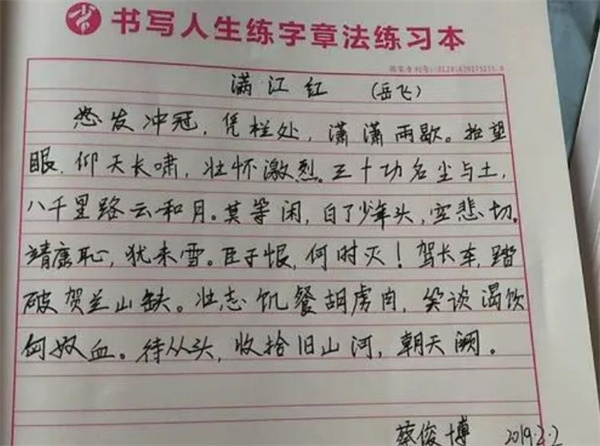 书写人生练字章法练习本
满江红 (岳飞)
怒发冲冠,凭栏处,潇潇雨歇。抬望
眼,仰天长啸,壮怀激烈。三十功名尘与土,
八千里路云和月。莫等闲,白了少年头,空悲切。
靖康耻,犹未雪。臣子恨,何时灭!驾长车,踏
破贺兰山缺。壮志饥餐胡虏肉,笑谈渴饮
匈奴血。待从头,收拾旧山河,朝天阙。
蔡俊博 2019.2.2